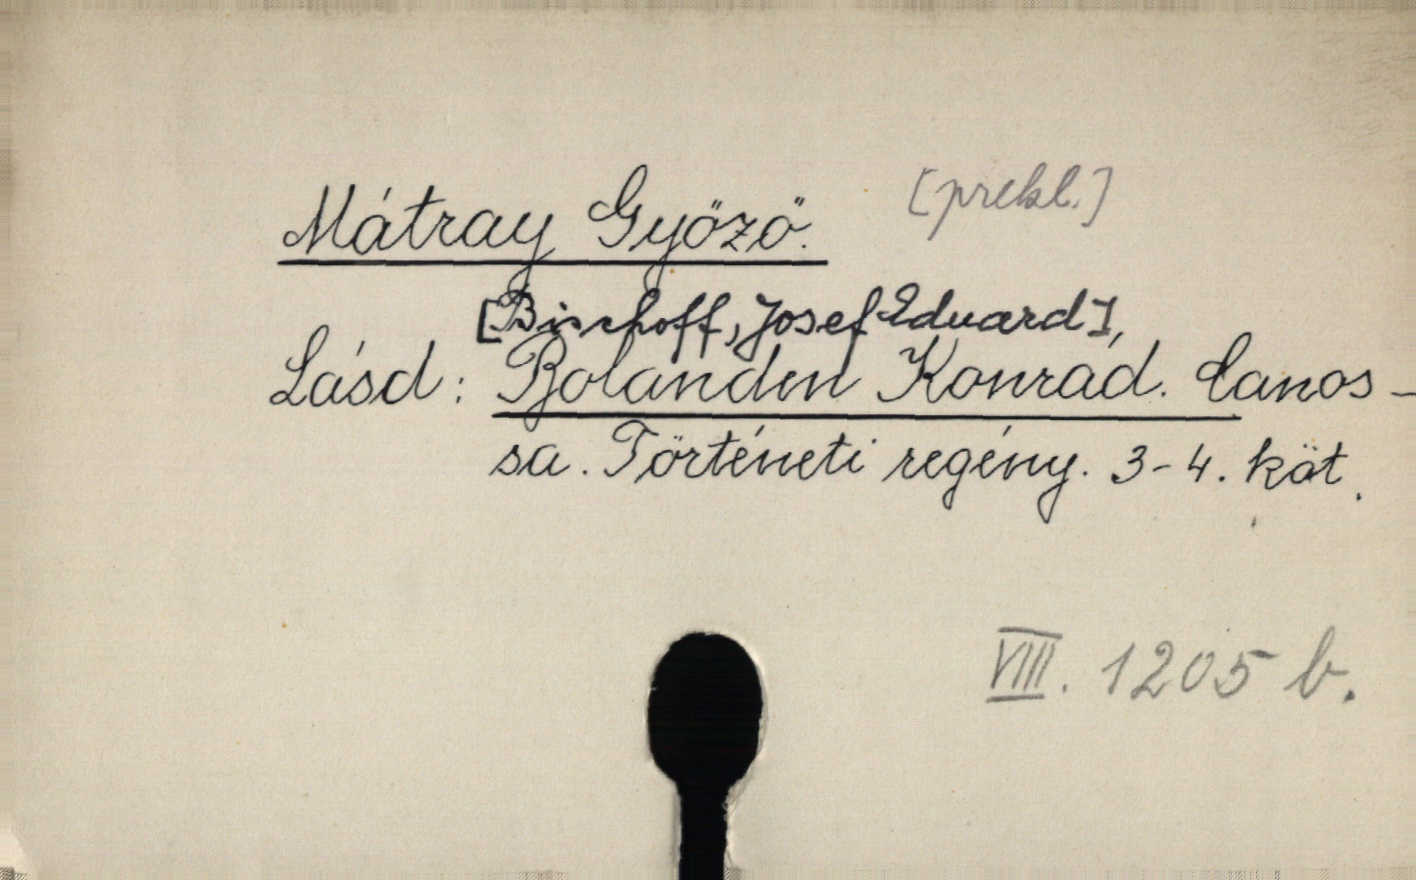 Mátray Győző. [prekl.]
[Bischoff, Josef Eduard],
Lásd: Bolanden Konrád. Canos-
sa. Történeti regény. 3-4. köt.
VIII. 1205 b.